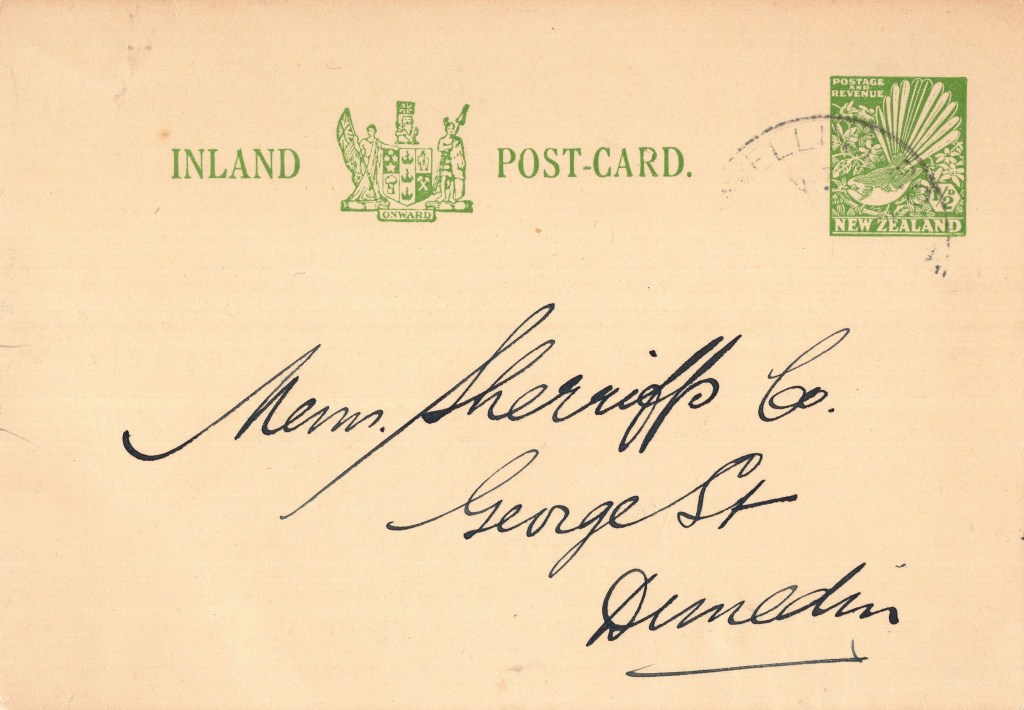 POSTAGE
AND
REVENUE
INLAND POST-CARD.
ONWARD
½D
NEW ZEALAND
Messrs. Sherriffs Co.
George St
Dunedin